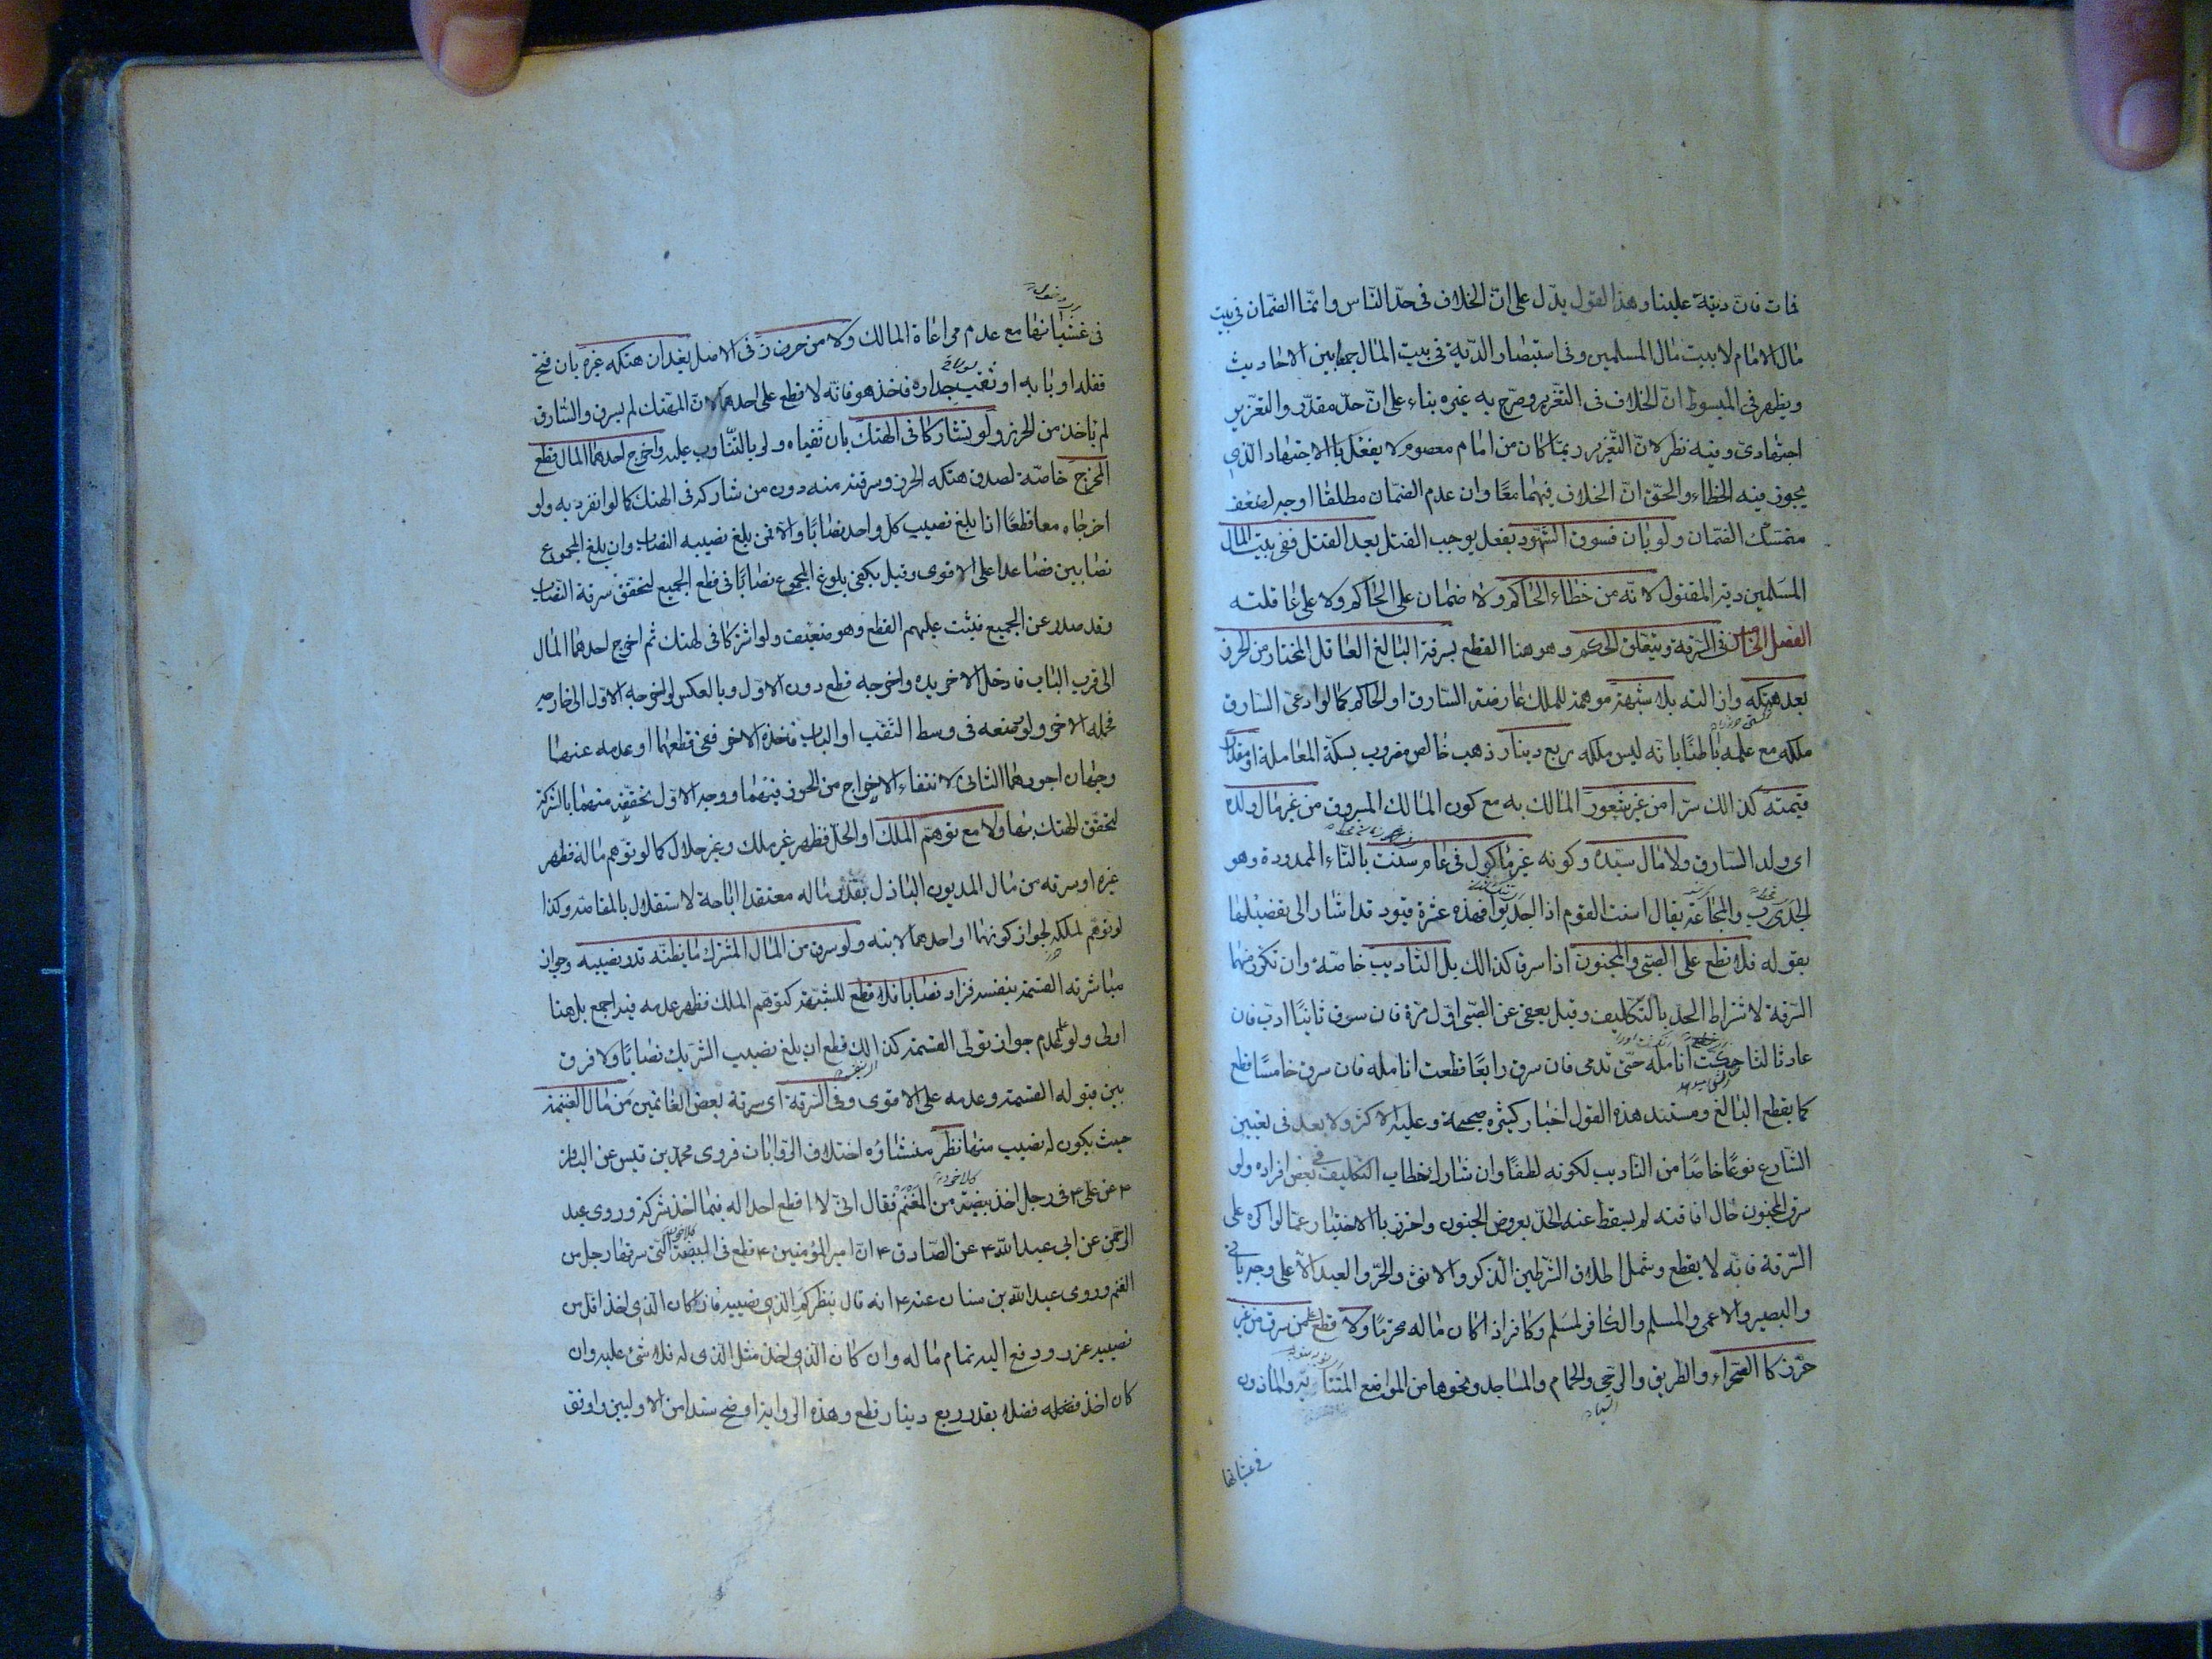 فمات فان ديته علينا وهذا القول يدل على ان الخلاف فى حد الناس وانما الضمان فى بيت
مال الامام لا بيت مال المسلمين وفى استبصار الدية فى بيت المال جمعا بين الاحاديث
ويظهر فى المبسوط ان الخلاف فى التعزير وصرح به غيره بناء على ان حد مقدر والتعزير
اجتهادى وفيه نظر لان التعزير ربما كان من امام معصوم لا يفعل باالاجتهاد الذى
يجوز فيه الخطاء والحق ان الخلاف فيهما معًا وان عدم الضمان مطلقا اوجه لضعف
متمسك الضمان ولو بان فسوق الشهود بفعل يوجب القتل بعد القتل ففى بيت المال
المسلمين دية المقتول لانه من خطاء الحاكم ولا ضمان على الحاكم ولا على عاقلته
الفصل الخامس فى السرقة ويتعلق الحكم وهو هنا القطع بسرقة البالغ العاقل المختار من الحرز
بعد هتكه وازالته بلا شبهة موهمة للملك عارضة السارق او الحاكم كما لو ادعى السارق
ملكه مع علمه باطنًا بانه ليس ملكه ربع دينار ذهب خالص مضروب بسكة المعاملة او مقدار
قيمته كذالك سرا من غير شعور المالك به مع كون المالك المسروق من غير مال ولده
اى ولد السارق ولا مال سيده وكونه غير ماكول فى عام سنت بالتاء الممدودة وهو
الجدب والمجاعة يقال اسنت القوم اذا اجدبوا فهذه عشرة قيود قد اشار الى تفضيلها
بقوله فلا قطع على الصبى والمجنون اذا سرقا كذالك بل التاديب خاصة وان تكرر منهما
السرقة لاشتراط الحد بالتكليف وقيل يعفى عن الصبى اول مرة فان سرق ثانيًا ادب فان
عاد ثالثا حكت انامله حتى تدمى فان سرق رابعًا قطعت انامله فان سرق خامسًا قطع
كما يقطع البالغ ومستند هذه القول اخبار كثيرة صحيحة وعليه الاكثر ولا بعد فى تعيين
الشارع نوعًا خاصًا من التاديب لكونه لطفًا وان شارك خطاب التكليف فى بعض افراده ولو
سرق المجنون حال افاقته لم يسقط عنه الحد بعروض الجنون واحترز باالاختيار عما لو اكره على
السرقة فانه لا يقطع وشمل اطلاق الشرطين الذكر والانثى والحر والعبد الا على وجه ياتى
والبصير والاعمى والمسلم والكافر لمسلم وكافر اذا كان ماله محترمًا ولا قطع على من سرق من غير
حرز كا الصحراء والطريق والرحى والحمام والمساجد ونحوها من المواضع المنتابة والماذون
فى غشيانها
فى غشيانها مع عدم مراعاة المالك ولا من حرز فى الاصل بعد ان هتكه غيره بان فتح
قفله او بابه او نقب جداره فاخذ هو فانه لا قطع على احدهما لان المهتك لم يسرق والسارق
لم ياخذ من الحرز ولو تشاركا فى الهتك بان نقباه ولو بالتناوب عليه واخرج احدهما المال قطع
المخرج خاصة لصدق هتكه الحرز وسرقته منه دون من شاركه فى الهتك كما لو انفرد به ولو
اخرجاه معا قطعًا اذا بلغ نصيب كل واحد نصابًا والا فمن بلغ نصيبه النصاب وان بلغ المجموع
نصابين فصاعدا على الاقوى وقيل يكفى بلوغ المجموع نصابًا فى قطع الجميع لتحقق سرقة النصاب
وقد صدر عن الجميع فيثبت عليهم القطع وهو ضعيف ولو اشتركا فى لهتك ثم اخرج احدهما المال
الى قرب الباب فادخل الاخر يده واخرجه قطع دون الاول وبالعكس لو اخرجه الاول الى خارجه
فحمله الاخر ولو وضعه فى وسط النقب او الباب فاخذه الاخر ففى قطعهما او عدمه عنهما
وجهان اجودهما الثانى لانتفاء الاخراج من الحرز فيهما ووجه الاول تحققه منهما بالشركة
لتحقق الهتك بهما ولا مع توهم الملك او الحل فظهر غير ملك وغير حلال كما لو توهم ماله فظهر
غيره او سرقه من مال المديون الباذل بقدر ماله معتقدا اباحة لاستقلال بالمقاصة وكذا
لو توهم لملكه لجواز كونهما او احدهما لابنه ولو سرق من المال المشترك ما يظنه قدر نصيبه وجواز
مباشرته القسمة بنفسه فزاد نصابا فلا قطع للشبهة كتوهم الملك فظهر عدمه فيه اجمع بل هنا
اولى ولو علم عدم جواز تولى القسمة كذالك قطع ان بلغ نصيب الشريك نصابًا ولا فرق
بين قبوله القسمة وعدمه على الاقوى وفى السرقة اى سرقة بعض الغانمين من مال الغنيمة
حيث يكون له نصيب منها نظر منشاؤه اختلاف الروايات فروى محمد بن قيس عن الباقر
٤ عن على ٤ فى رجل اخذ بيضة من المغنم فقال انى لا اقطع احدا له فيما اخذ شركة وروى عبد
الرحمن عن ابى عبد الله ٤ عن الصادق ٤ ان امير المؤمنين ٤ قطع فى البيضة التى سرقها رجل من
الغنم وروى عبد الله بن سنان عنه ٤ انه قال ينظر كم الذى نصيبه فاذا كان الذى اخذ اقل من
نصيبه عزر ودفع اليه تمام ماله وان كان الذى اخذ مثل الذى له فلا شئ عليه وان
كان اخذ فضله فضلا بقدر ربع دينار قطع وهذه الرواية اوضح سندا من الاوليين واوفق